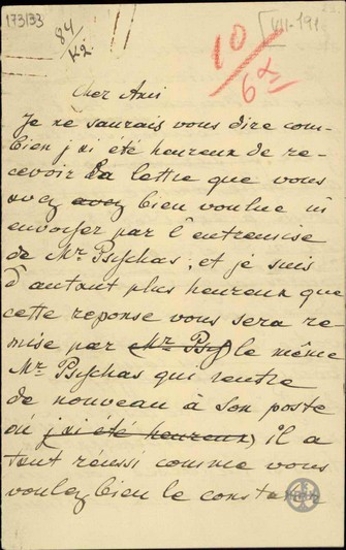 173/33
84/κ2.
[VII-191
10/6α
Cher Ami
Je ne saurais vous dire com-
bien j'ai été heureux de re-
cevoir la lettre que vous
avez avez bien voulue m'
envoyer par l'entremise
de Mr. Psychas; et je suis
d'autant plus heureux que
cette reponse vous sera re-
mise par Mr. Psy le même
Mr. Psychas qui rentre
de nouveau à son poste
où j'ai été heureux, il a
tant réussi comme vous
voulez bien le constater